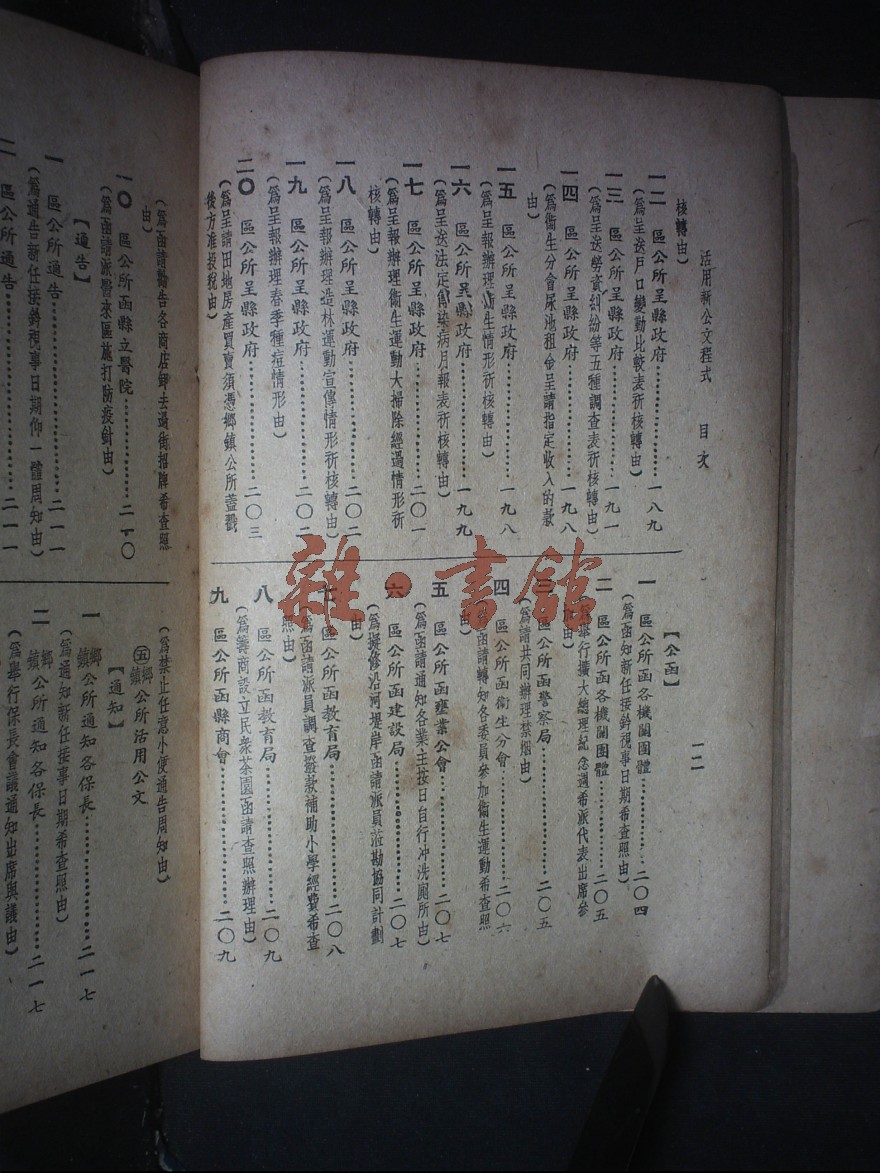 活用新公文程式　目次
一二
核轉由)
一二　區公所呈縣政府……………一八九
(爲呈送戶口變動比較表祈核轉由)
一三　區公所呈縣政府……………一九一
(爲呈送勞資糾紛等五種調查表祈核轉由)
一四　區公所呈縣政府……………一九八
(爲衞生分會尿池租金呈請指定收入的款
由)
一五　區公所呈縣政府……………一九八
(爲呈報辦理衞生情形祈核轉由)
一六　區公所呈縣政府……………一九九
(爲呈送法定傳染病月報表祈核轉由)
一七　區公所呈縣政府……………二〇一
(爲呈報辦理衞生運動大掃除經過情形祈
核轉由)
一八　區公所呈縣政府……………二〇二
(爲呈報辦理造林運動宣傳情形祈核轉由)
一九　區公所呈縣政府……………二〇二
(爲呈報辦理春季種痘情形由)
二〇　區公所呈縣政府……………二〇三
(爲呈請田地房產買賣須憑鄉鎮公所蓋戳
後方准投稅由)
【公函】
一　區公所函各機關團體……………二〇四
(爲函知新任接鈐視事日期希查照由)
二　區公所函各機關團體……………二〇五
(爲舉行擴大總理紀念週希派代表出席參
加由)
三　區公所函警察局……………二〇五
(爲請共同辦理禁烟由)
四　區公所函衞生分會……………二〇六
(爲函請轉知各委員參加衞生運動希查照
由)
五　區公所函壅業公會……………二〇七
(爲函請通知各業主按日自行冲洗廁所由)
六　區公所函建設局……………二〇七
(爲擬修沿河堤岸函請派員蒞勘協同計劃
由)
七　區公所函教育局……………二〇八
(爲函請派員調查撥款補助小學經費希查
照由)
八　區公所函教育局……………二〇九
(爲籌商設立民衆茶園函請查照辦理由)
九　區公所函縣商會……………二〇九
(爲函請勸告各商店卸去過街招牌希查照
由)
一〇　區公所函縣立醫院……………二一〇
(爲函請派醫來區施打防疫針由)
【通告】
一　區公所通告……………二一一
(爲通告新任接鈐視事日期仰一體周知由)
二　區公所通告……………二一一
(爲禁止任意小便通告周知由)
㊄鄉鎮公所活用公文
【通知】
一　鄉鎮公所通知各保長……………二一七
(爲通知新任接事日期希查照由)
二　鄉鎮公所通知各保長……………二一七
(爲舉行保長會議通知出席與議由)
雜·書館